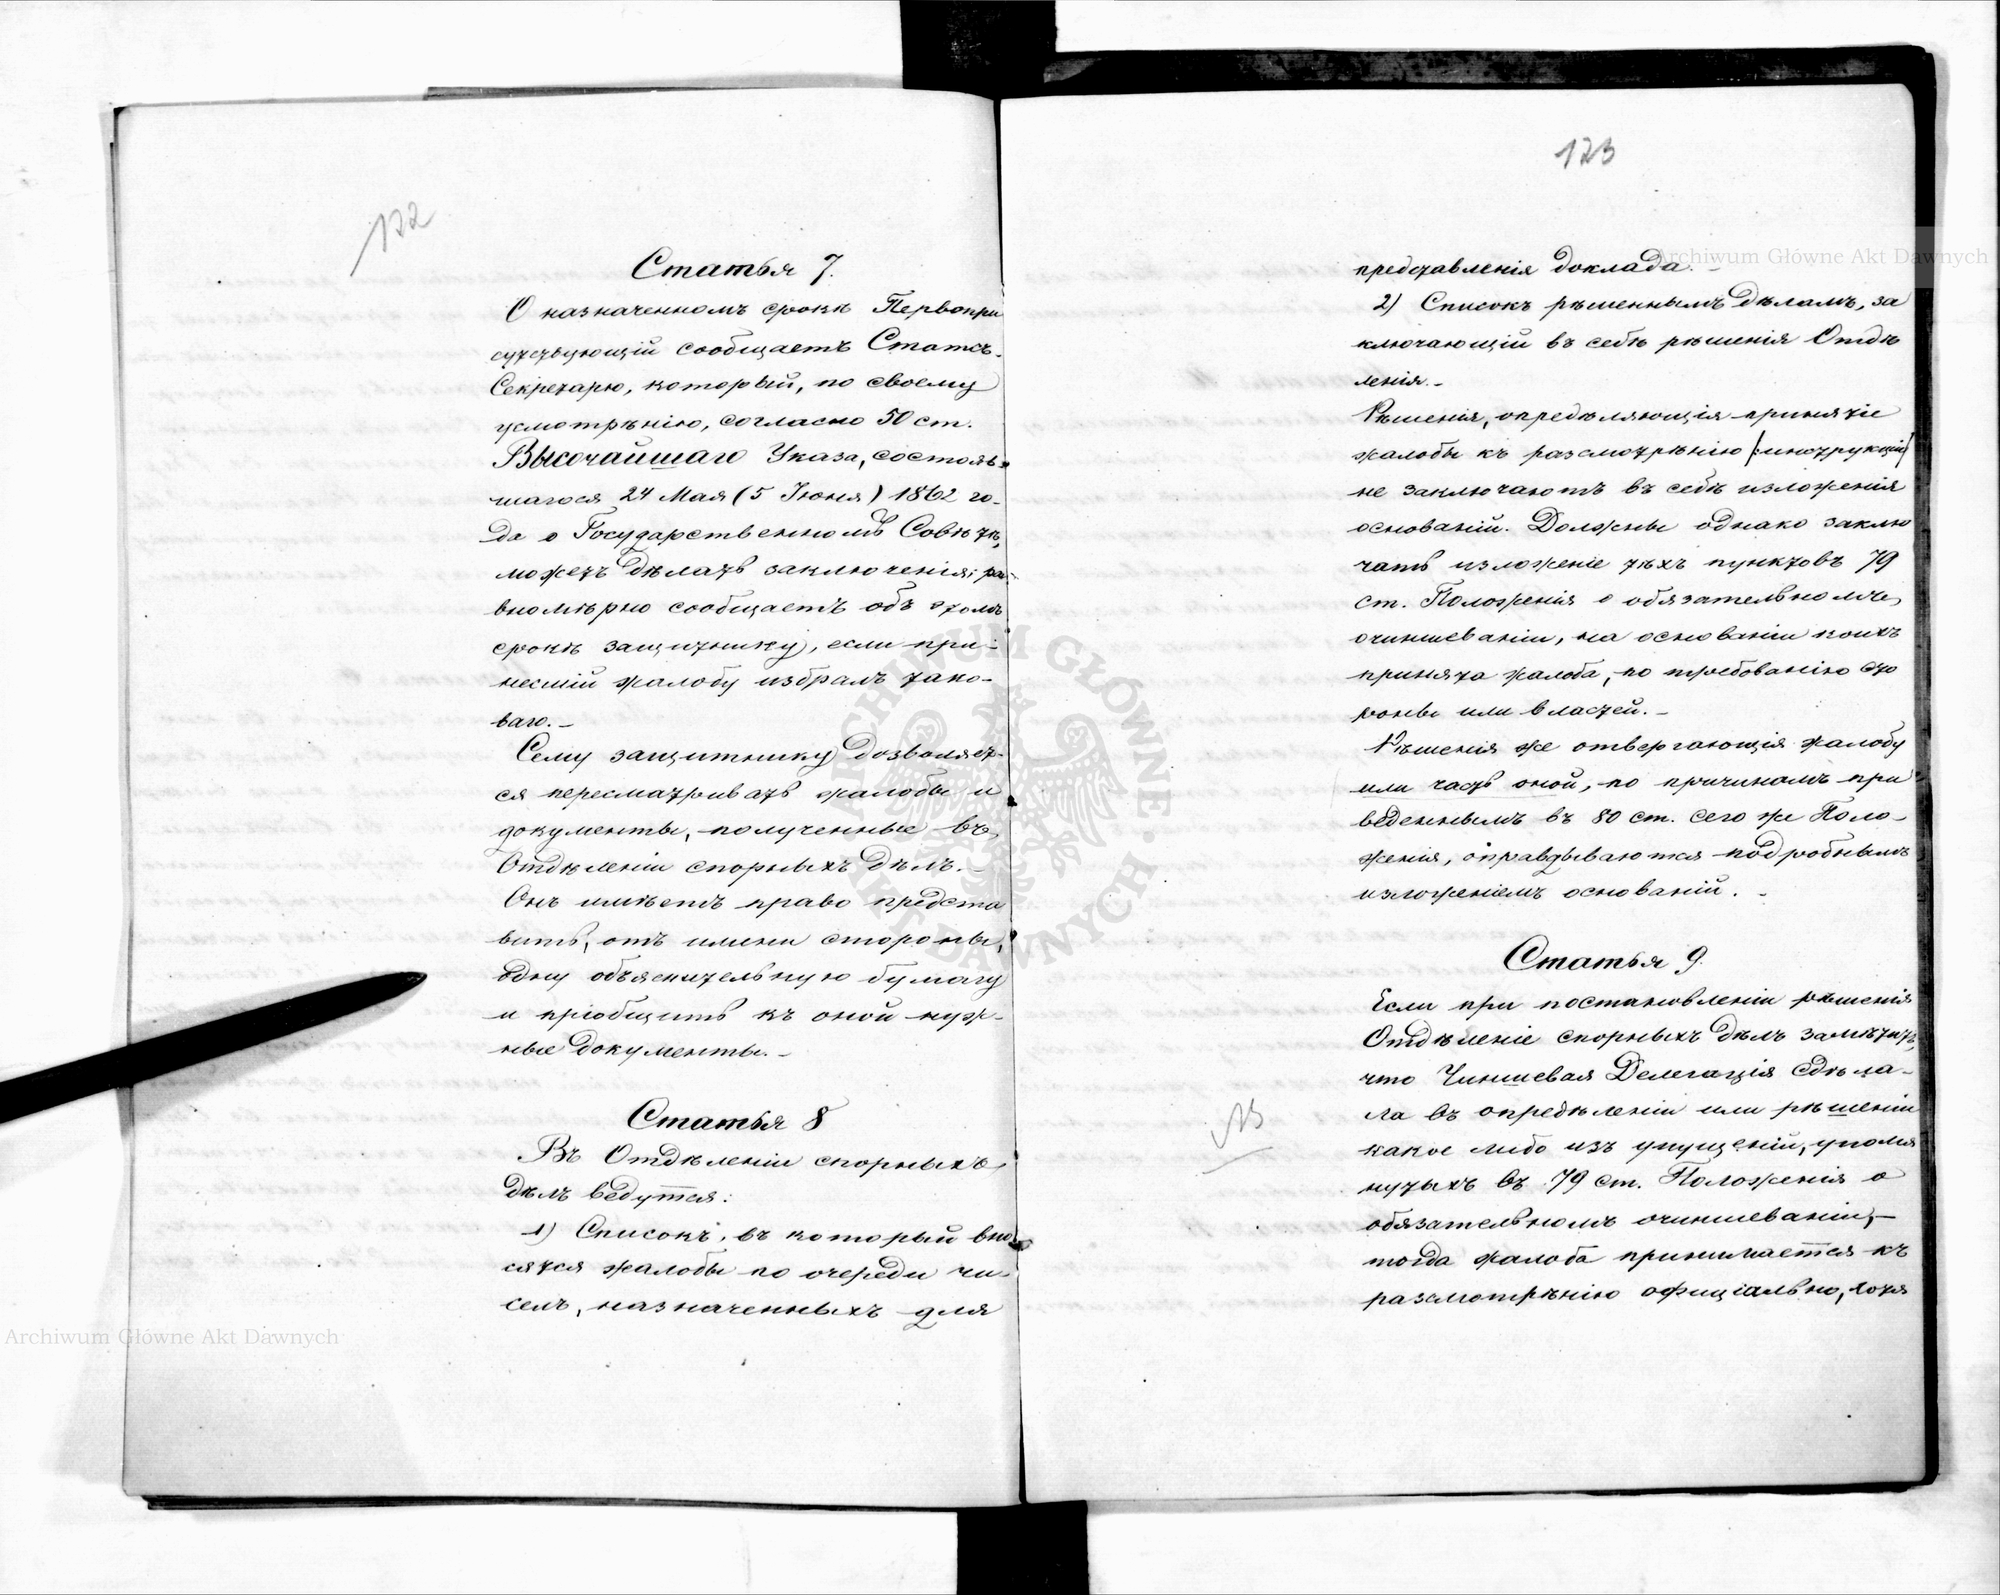 122
Статья 7.
О назначенномъ срокѣ Первопри
сутствующій сообщаетъ Статсъ-
Секретарю, который, по своему
усмотрѣнію, согласно 50 ст.
Высочайшаго Указа, состояв-
шагося 24 Мая (5 Іюня) 1862 го-
да о Государственномъ Совѣтѣ,
можетъ дѣлать заключенія; ра-
вномѣрно сообщаетъ объ этомъ
срокѣ защитнику, если при-
несшій жалобу избралъ тако-
ваго.-
Сему защитнику дозволяет-
ся пересматривать жалобы и
документы, полученные въ
Отдѣленіи спорныхъ дѣлъ.-
Онъ имѣетъ право предста
вить, отъ имени стороны,
одну объяснительную бумагу
и пріобщить къ оной нуж-
ные документы.-
Статья 8
Въ Отдѣленіи спорныхъ
дѣлъ ведутся:
1) Списокъ, въ который вно-
сятся жалобы по очереди чи-
селъ, назначенныхъ для
123
представленія доклада.-
2) Списокъ рѣшеннымъ дѣламъ, за
ключающій въ себѣ рѣшенія Отдѣ
ленія.-
Рѣшенія, опредѣляющія принятіе
жалобы къ разсмотрѣнію /:инструкціи/
не заключаютъ въ себѣ изложенія
основаній. Должны однако заклю
чать изложеніе тѣхъ пунктовъ 79
ст. Положенія о обязательномъ
очиншеваніи, на основаніи коихъ
принята жалоба, по требованію сто
роны или властей.-
Рѣшенія же отвергающія жалобу
или часть оной, по причинамъ при
веденнымъ въ 80 ст. сего же Поло-
женія, оправдываются подробнымъ
изложеніемъ основаній.-
Статья 9.
Если при постановленіи рѣшенія
Отдѣленіе спорныхъ дѣлъ замѣтитъ,
что Чиншевая Делегація сдѣла-
ла въ опредѣленіи или рѣшеніи
какое либо изъ упущеній, упомя
нутыхъ въ 79 ст. Положенія о
обязательномъ очиншеваніи,-
тогда жалоба принимается къ
разсмотрѣнію офиціально, хотя
Archiwum Główne Akt Dawnych
Archiwum Główne Akt Dawnych
ARCHIWUM GŁÓWNE AKT DAWNYCH